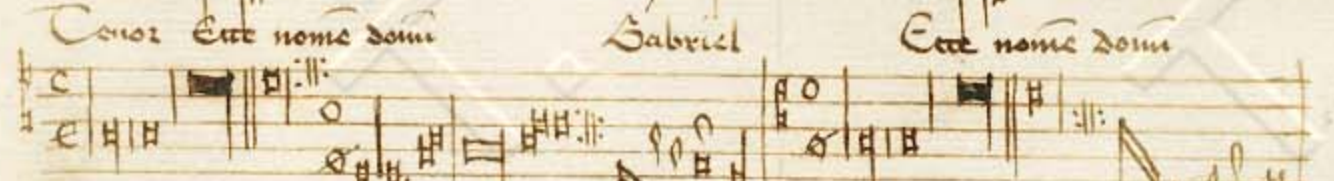 Tenor Ecce nomē domī Gabriel Ecce nomē domī